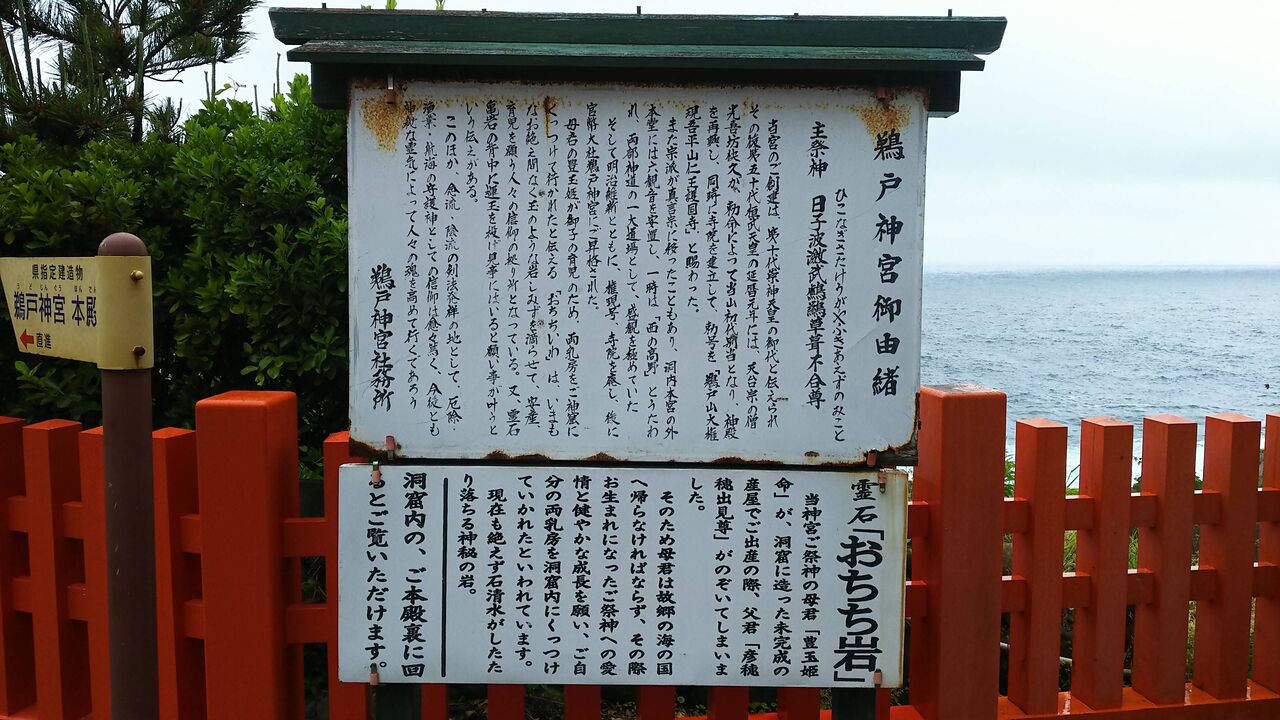 鵜戸神宮御由緒
ひこなぎさたけうがやふきあえずのみこと
主祭神 日子波瀲武鸕鷀草葺不合尊
当宮のご創建は、第十代崇神天皇の御代と伝えられ
その後第五十代桓武天皇の延暦元年には、天台宗の僧
光喜坊快久が、勅命によって当山初代別当となり、神殿
を再興し、同時に寺院を建立して、勅号を「鵜戸山大権
現吾平山仁王護国寺」と賜わった。
また宗派が真言宗に移ったこともあり、洞内本宮の外
本堂には六観音を安置し、一時は「西の高野」とうたわ
れ、両部神道の一大道場として、盛観を極めていた
そして明治維新とともに、権現号・寺院を廃し、後に
官幣大社鵜戸神宮にご昇格された。
母君の豊玉姫が御子の育児のため、両乳房をご神窟に
くっつけて行かれたと伝える「おちちいわ」は、いまも
なお絶え間なく玉のような岩しみずを滴らせて、安産・
育児を願う人々の信仰の拠り所となっている。又、霊石
亀岩の背中に運玉を投げ見事にはいると願い事が叶うと
いい伝えがある。
このほか、念流・陰流の剣法発祥の地として、厄除・
漁業・航海の守護神としての信仰は愈々篤く、今後とも
神秘な霊気によって人々の魂を高めて行くであろう
鵜戸神宮社務所
霊石「おちち岩」
当神宮ご祭神の母君「豊玉姫
命」が、洞窟に造った未完成の
産屋でご出産の際、父君「彦穂
穂出見尊」がのぞいてしまいま
した。
そのため母君は故郷の海の国
へ帰らなければならず、その際
お生まれになったご祭神への愛
情と健やかな成長を願い、ご自
分の両乳房を洞窟内にくっつけ
ていかれたといわれています。
現在も絶えず石清水がしたた
り落ちる神秘の岩。
洞窟内の、ご本殿裏に回
るとご覧いただけます。
県指定建造物
うどじんぐう ほんでん
鵜戸神宮 本殿
直進